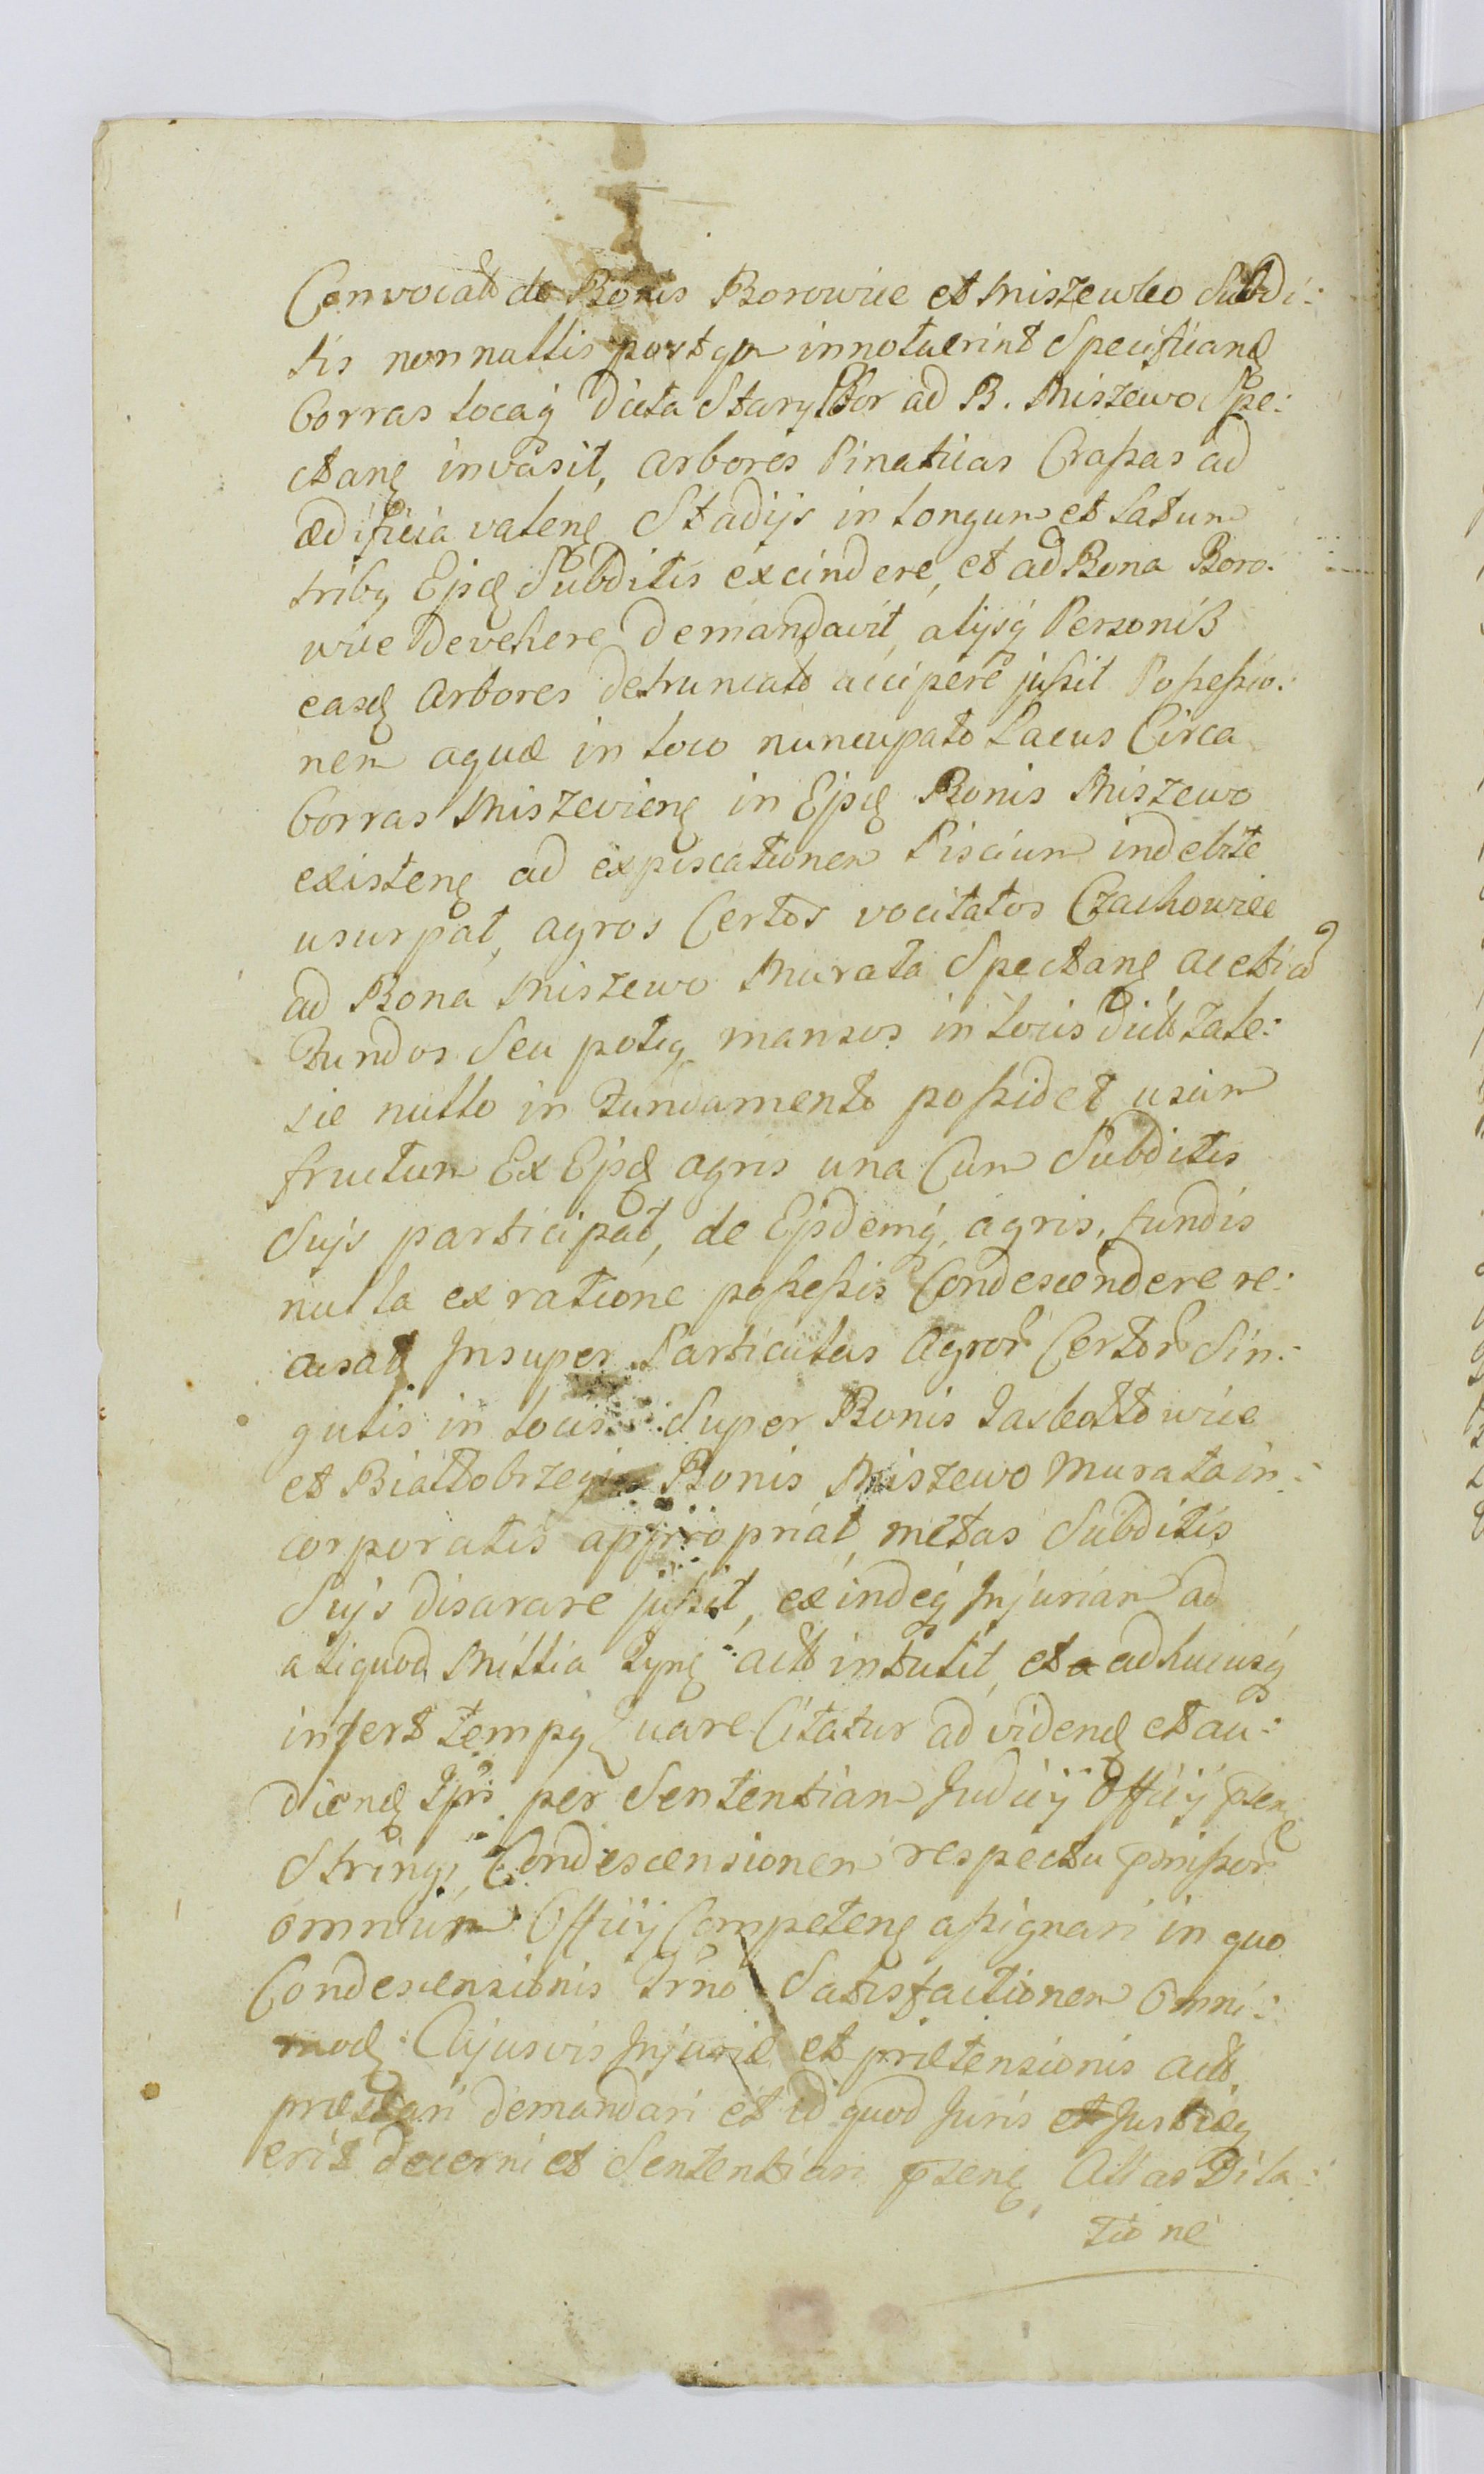 Convocatt de Bonis Borowice et Miszewko Subdi:
tis nonnullis postqm innotuerint Specificanđ
borras locaq̨ dicta Stary Bor ad B. Miszewo Spe:
ctanę invasit, arbores Pinaticas Crassas ad
ædificia valenę Stadijs in longum et latum
tribq Ejsđ Subditis excindere, et ad Bona Boro:
wice devehere demandavit, alijsq̨ Personis
easđ arbores detruncatt accipere jussit Possessio:
nem aquæ in loco nuncupato Lacus Circa
borras Miszevienę in Ejsđ Bonis Miszewo
existenę ad expiscationem Piscium indebite
usurpat, agros Certos vocitatos Czachowice
ad Bona Miszewo Murata Spectanę ac etiã
Fundos Seu potiq mansos in locis dictt Zale:
sie nullo in Fundamento possidet usum
fructum Ex Ejsđ agris una Cum Subditis
Suys participat, de Ejsdemq̨ agris, fundis
nulla ex ratione possessis Condescendere re:
cusatq̨ Insuper Particulas Agror Certor Sin:
gulis in locis Super Bonis Jaskołtowice
et Białłobrzegi Bonis Miszewo Murata in:
corporatis appropriat, metas Subditis
Suys disarare jussit, exindeq̨ Injuriam ad
aliquod Millia Tynę actt intulit, et adhucusq̨
infert tempq quare Citatur ad videnđ et au:
dienđ Ipse per Sententiam Judicÿ Officÿ psenę
Stringi, Condescensionem respectu pmissor
omnium Officÿ Competenę assignari in quo
Condescensionis Trno Satisfactionem omni:
mođ Cujusvis Injuriæ et prætensionis actt
præstari demandari et id quod Juris et Justiæq
erit decerni et Sententiari psenę Allas Dila:
tione